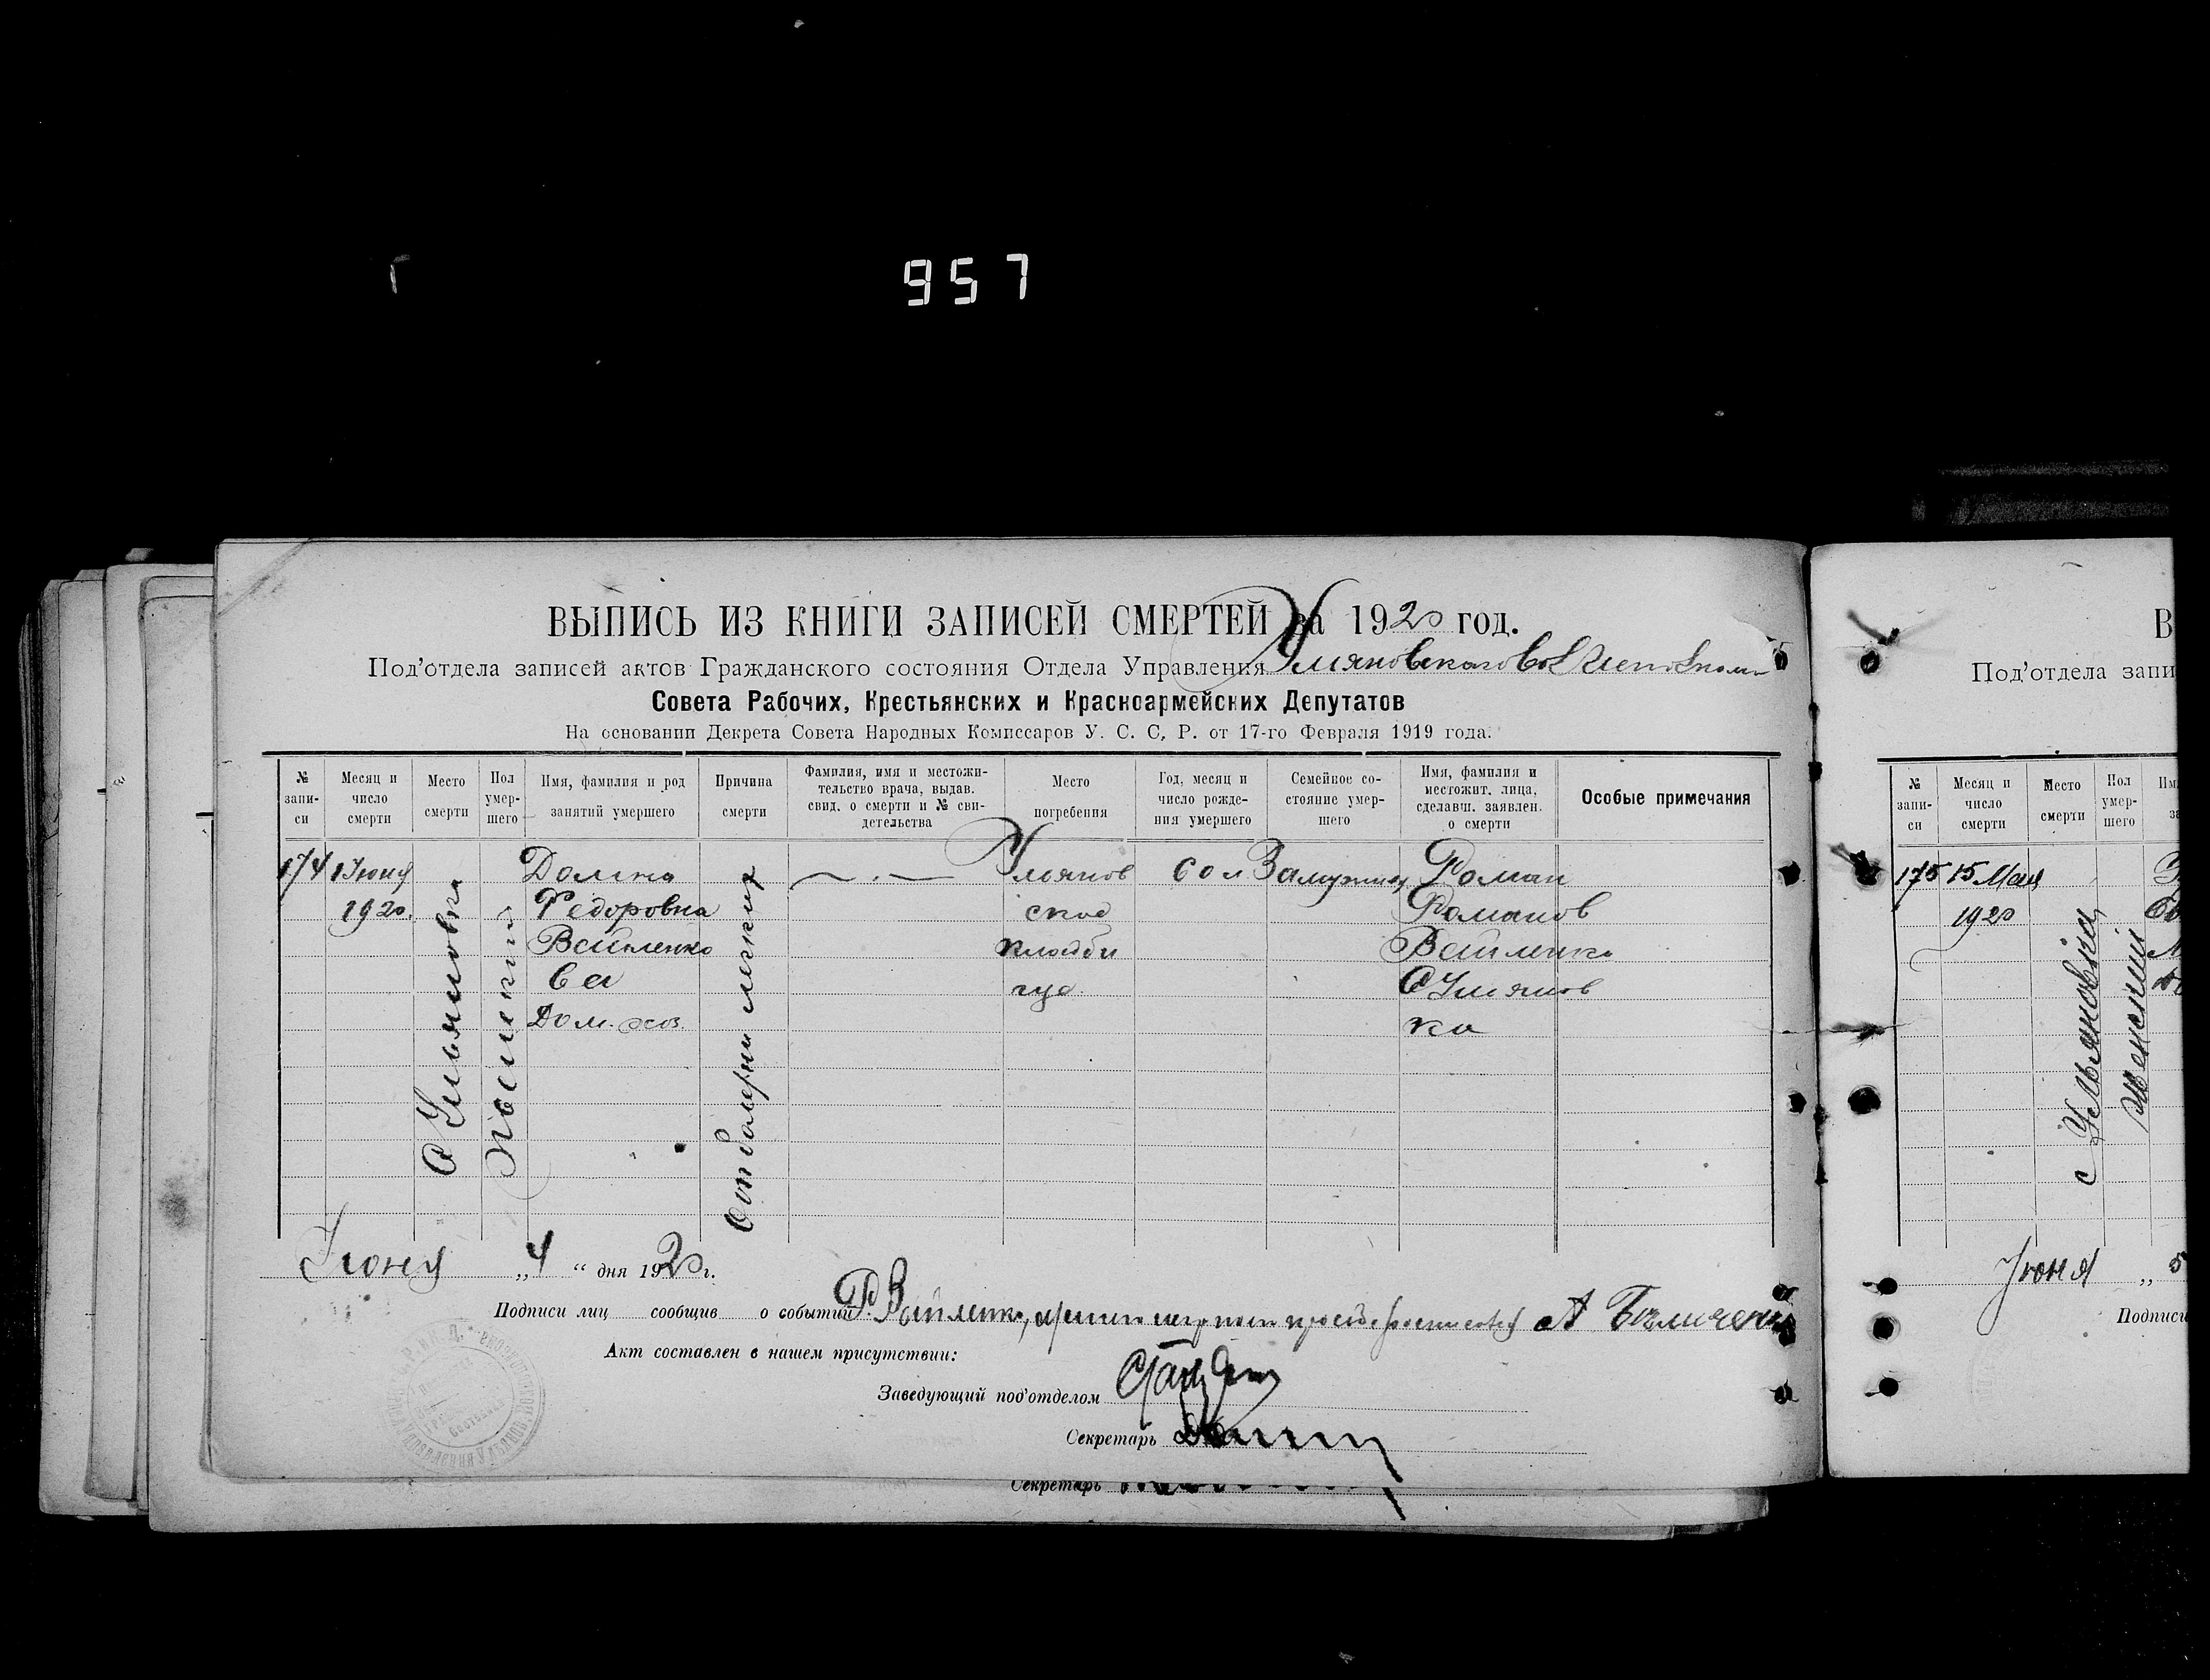 957
ВЫПИСЬ ИЗ КНИГИ ЗАПИСЕЙ СМЕРТЕЙ за 1920 год.
Под'отдела записей актов Гражданского состояния Отдела Управления
Совета Рабочих, Крестьянских и Красноармейских Депутатов
На основании Декрета Совета Народных Комиссаров У. С. С. Р. от 17-го Февраля 1919 года.
№ запи-си
Месяц и число смерти
Место смерти
Пол умер-шего
Имя, фамилия и род занятий умершего
Причина смерти
Фамилия, имя и местожи-тельство врача, выдав. свид. о смерти и № сви-детельства
Место погребения
Год, месяц и число рожде-ния умершего
Семейное со-стояние умер-шего
Имя, фамилия и местожит. лица, сделавш. заявлен. о смерти
Особые примечания
174
1 Июня
1920.
С Ульяновка
Женский
Домна
Федоровна
ва
Дом. хоз.
Ульянов
ское
кладби
ще
60 л
Замужняя
Роман
Романов
С Ульянов
ка
Июня „4“ дня 1920 г.
Подписи лиц сообщив о событии Р.
Акт составлен в нашем присутствии:
Заведующий под'отделом
Секретарь
Секретарь
В
Под'отдела запи
№ запи-си
Месяц и число смерти
Место смерти
Пол умер-шего
175
15 Мая
1920
с Ульяновка
женский
Июня „5
Подписи